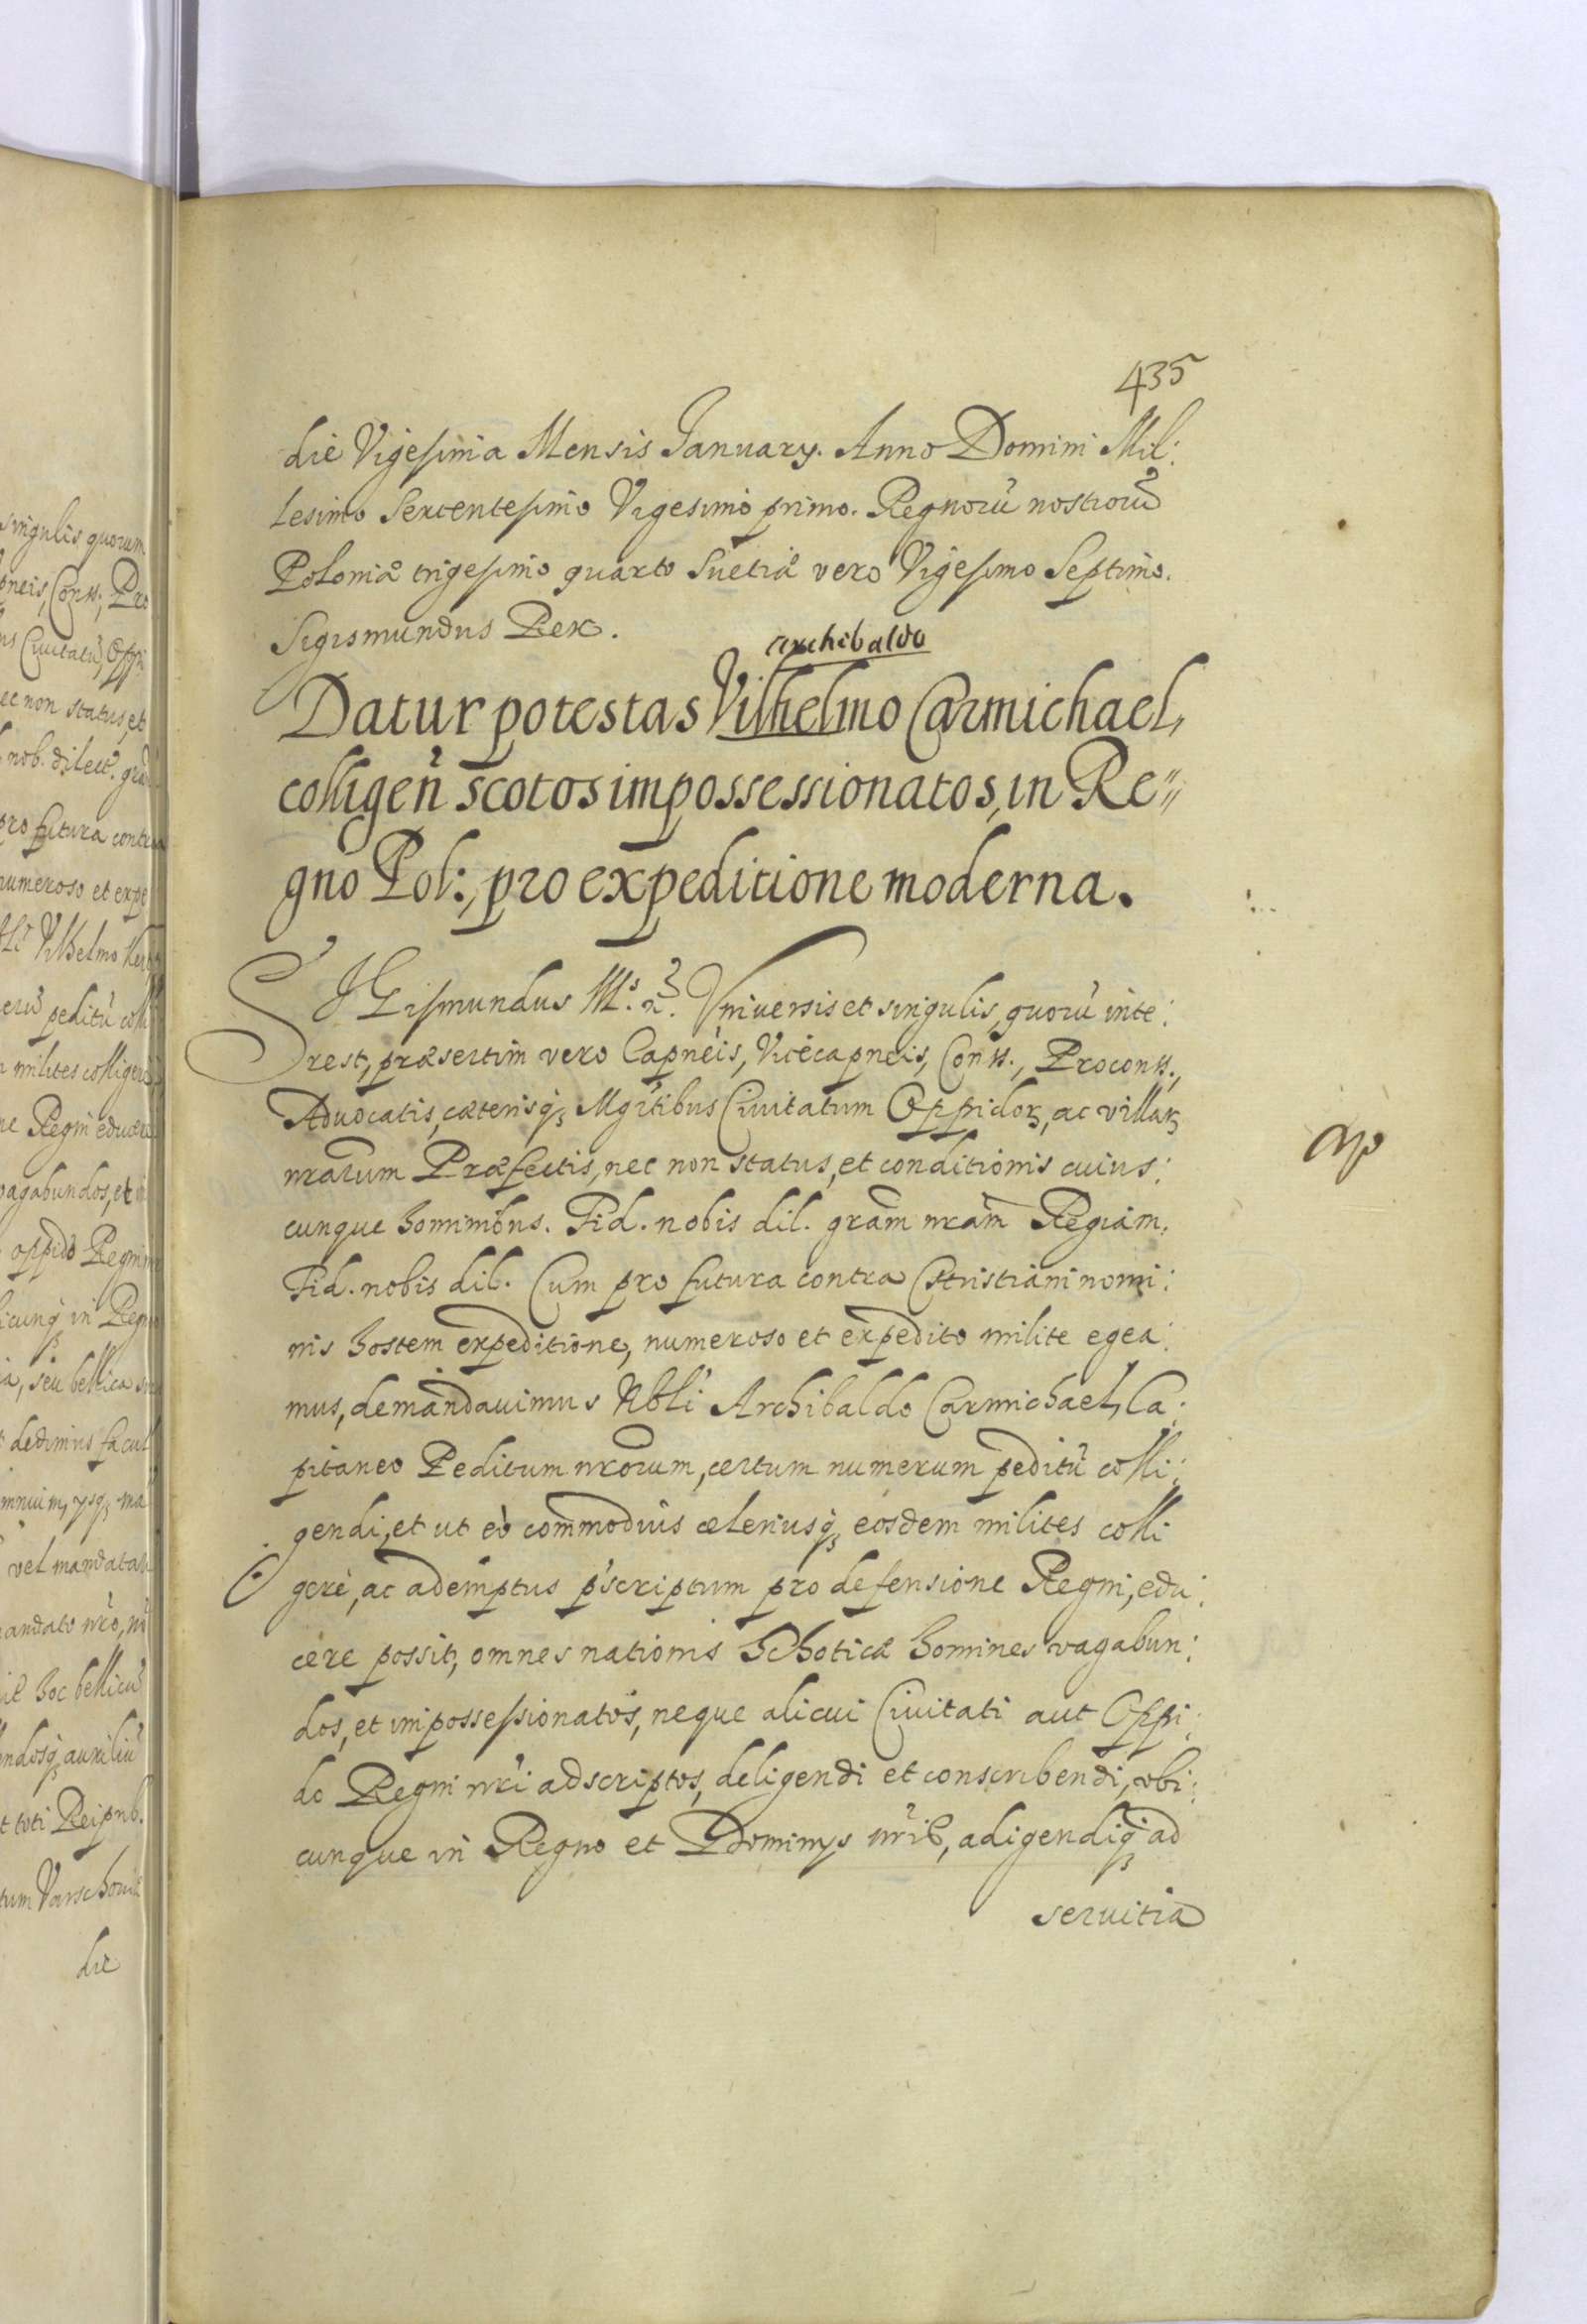 435
die Vigesima Mensis January. Anno Domini Mil:
lesimo Sexcentesimo Vigesimo primo. Regnorũ nostrorũ
Poloniæ trigesimo quarto Suetiæ vero Vigesimo Septimo.
Sigismundus Rex.
Archibaldo
Datur potestas Vilhelmo Carmichael,
colligen̄ scotos impossessionatos, in Re"
gno Pol:, pro expeditione moderna.
SIGismundus III.s Vniversis et singulis, quorũ inte:
rest, præsertim vero Capneis, Vicecapneis, Conss., Proconss.,
Aduocatis, cæterisq; Mgrtibus Ciuitatum Oppidoꝝ, ac villaꝝ
nrarum Præfectis, nec non status, et conditionis cuius:
cunque hominibus. Fid. nobis dil. gram nram Regiam.
Fid. nobis dil. Cum pro futura contra Christiani nomi:
nis hostem expeditione, numeroso et expedito milite egea:
mus, demandauimus Nbli Archibaldo Carmichael, Ca:
pitaneo Peditum nrorum, certum numerum peditũ colli:
gendi, et ut eò commodius celeriusq; eosdem milites colli
gere, ac ad emptus pscriptum pro defensione Regni, edu:
cere possit, omnes nationis Schoticæ homines vagabun:
dos, et impossessionatos, neque alicui Ciuitati aut Oppi:
do Regni nri adscriptos, deligendi et conscribendi, vbi:
cunque in Regno et Dominys nris, adigendiq; ad
seruitia
singulis quorum
pneis, Conss, Pro
us Ciuitatũ, Oppi
ec non status, et
nob. dilect. gra
pro futura contra
numeroso et expe
Vilhelmo Ker
erũ peditũ colli
milites colligere
ne Regni educere
vagabundos, et
oppido Regni
icunq; in Regno
a, seu bellica
dedimus facul
omnium, ysq; ma
vel mandata
andato nro,
hoc bellicũ
ndosq; auxiliũ
t toti Reipub.
tum Varschouiæ
die